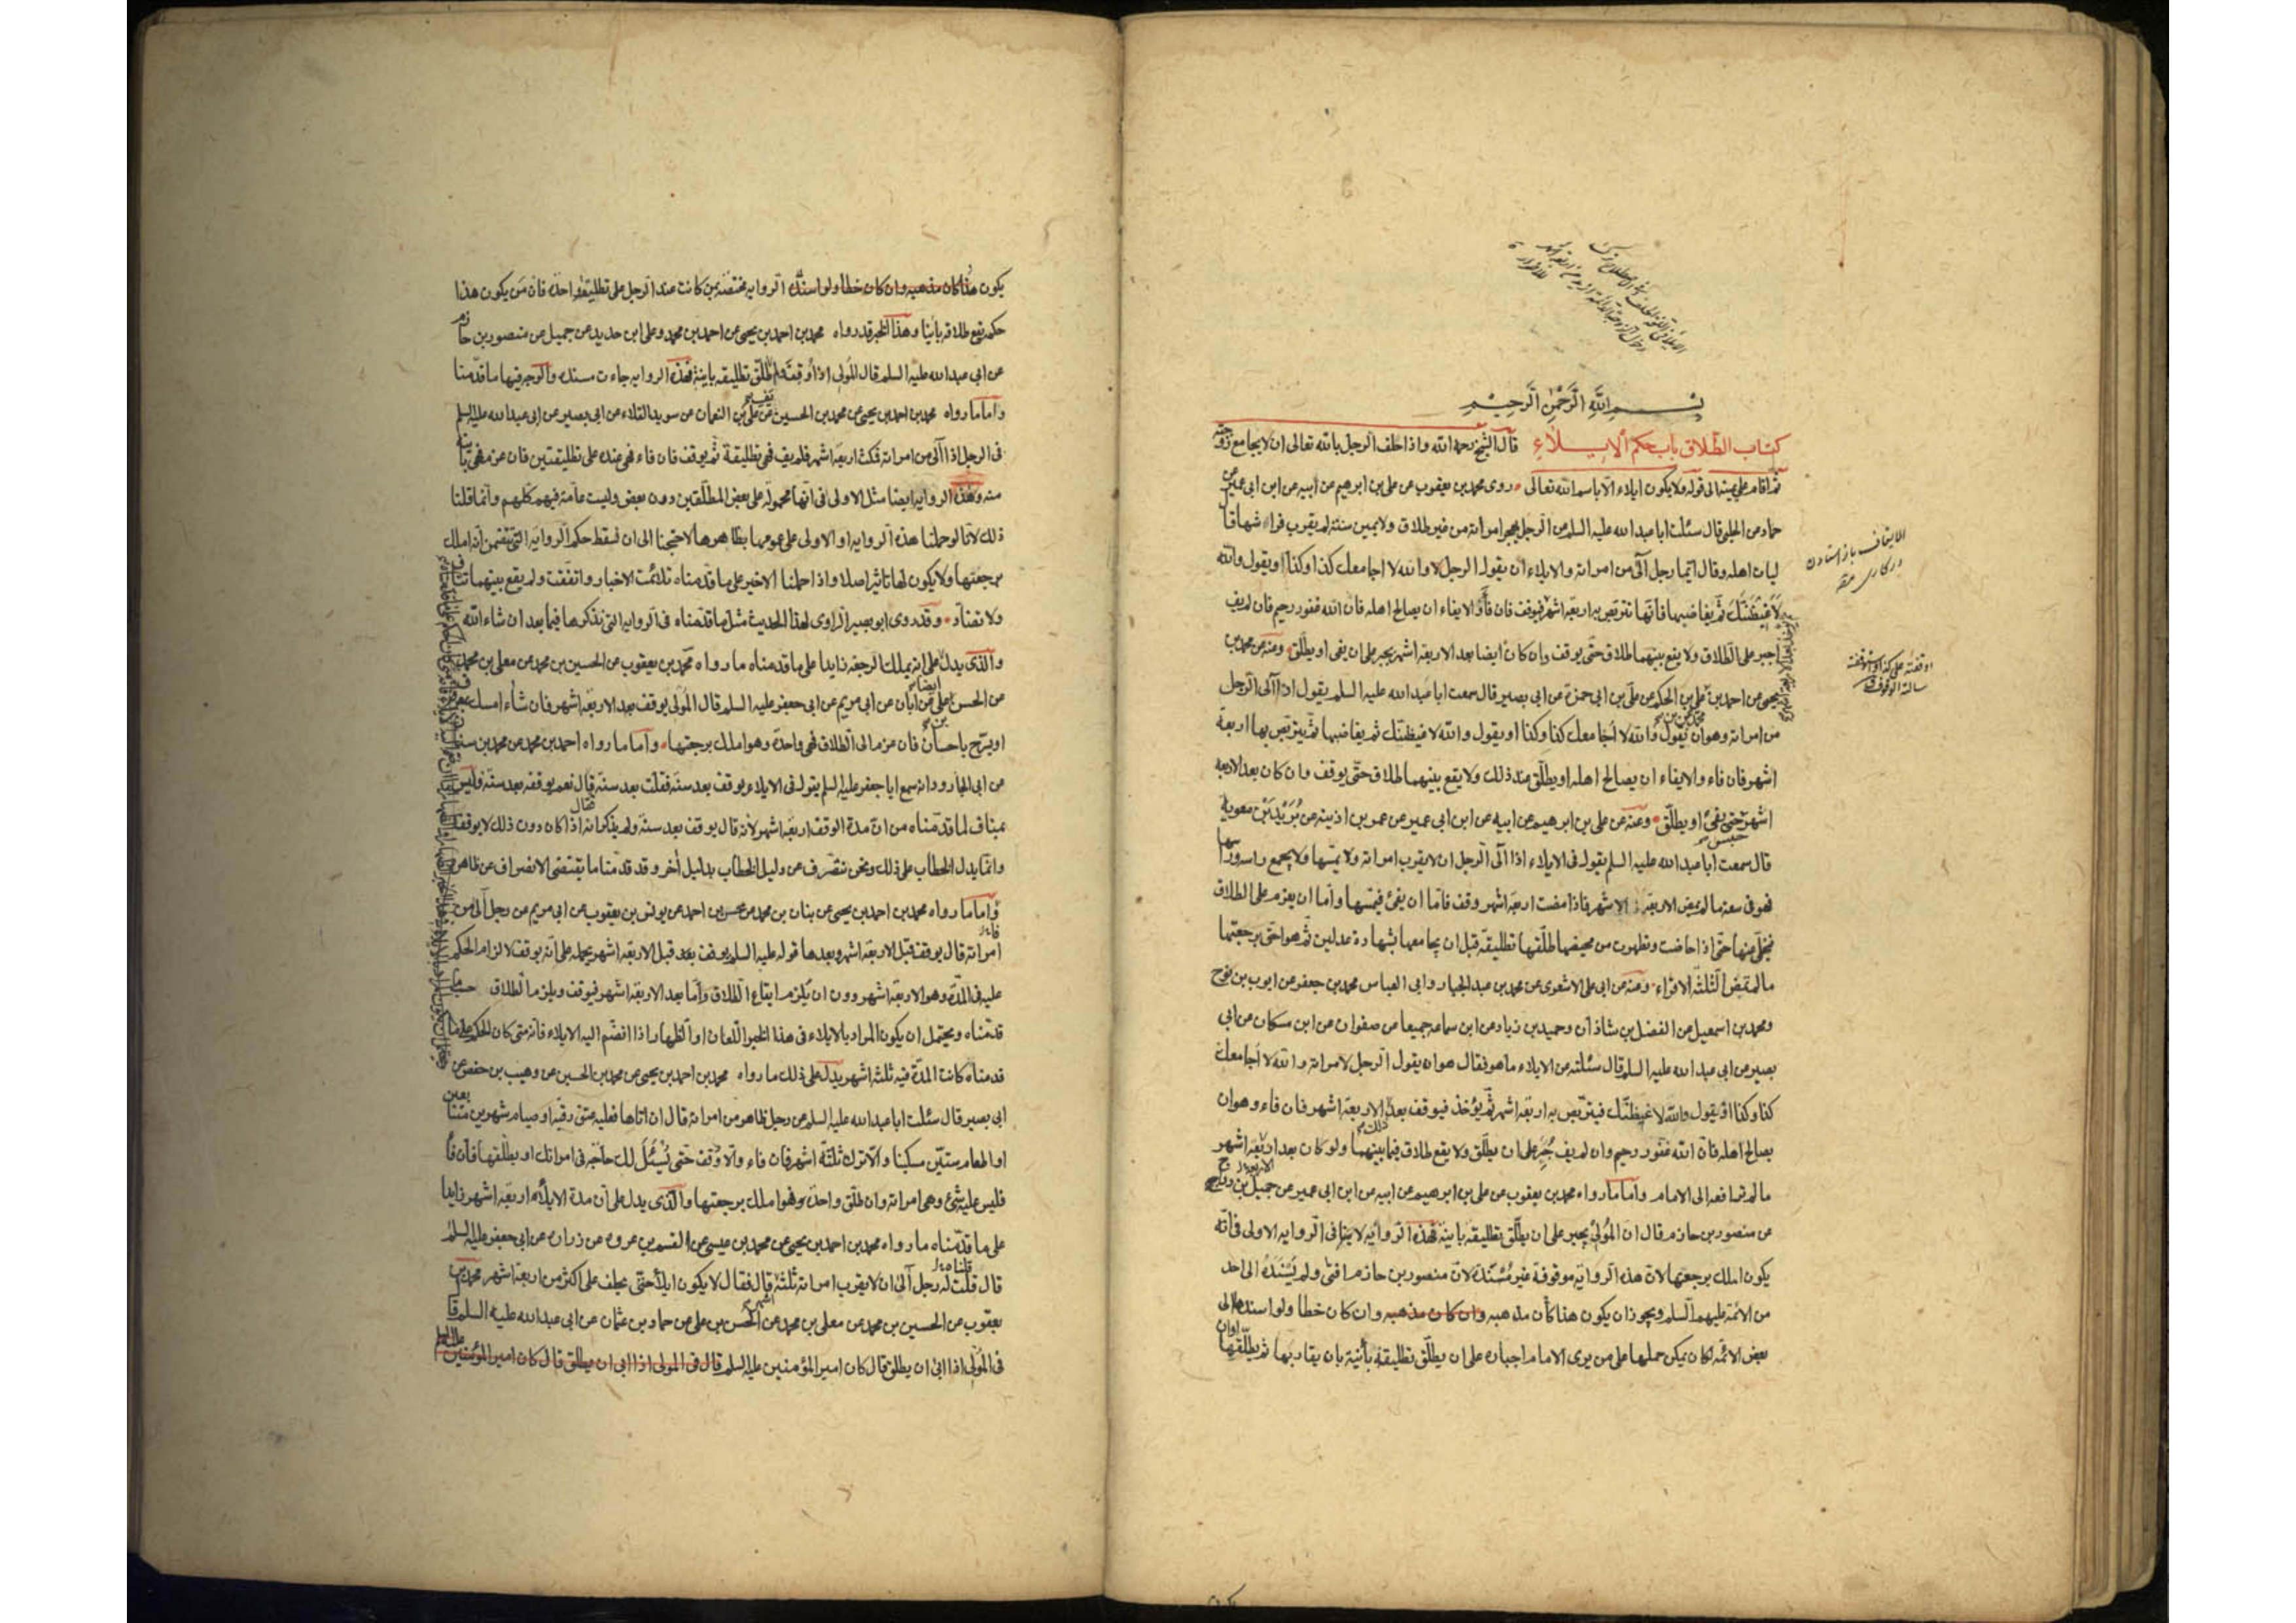 بسم الله الرحمن الرحيم
كتاب الطلاق باب حكم الايلاء قال الشيخ رحمه الله واذا حلف الرجل بالله تعالى ان لا يجامع زوجته
ثم اقام على يمينه الى قوله ولا يكون ايلاء الا باسم الله تعالى روى محمد بن يعقوب عن على بن ابرهيم عن ابيه عن ابن ابى عمير عن
حماد عن الحلبى قال سئلت ابا عبد الله عليه السلم عن الرجل يهجر امراته من غير طلاق ولا يمين سنة لم يقرب فراشها قا
ليات اهله وقال ايما رجل آلى من امراته والايلاء ان يقول الرجل لا والله لا اجامعك كذا وكذا او يقول والله
لاغيظنك ثم يغاضبها فانها تتربص به اربعة اشهر فيوقف فان فاء والايفاء ان يصالح اهله فان الله غفور رحيم فان لم يف
اجبر على الطلاق ولا يقع بينهما طلاق حتى يوقف وان كان ايضا بعد الاربعة اشهر يجبر على ان يفى او يطلق وعنه عن محمد بن
يحيى عن احمد بن على بن الحكم عن على بن ابى حمزة عن ابى بصير قال سمعت ابا عبد الله عليه السلم يقول اذا آلى الرجل
من امراته وهو ان يقول والله لا اجامعك كذا وكذا او يقول والله لاغيظنك ثم يغاضبها ثم يتربص بها اربعة
اشهر فان فاء والايفاء ان يصالح اهله او يطلق عند ذلك ولا يقع بينهما طلاق حتى يوقف وان كان بعد الاربعة
اشهر حتى يفئ او يطلق وعنه عن على بن ابرهيم عن ابيه عن ابن ابى عمير عن عمر بن اذينة عن بريد بن معوية
قال سمعت ابا عبد الله عليه السلم يقول فى الايلاء اذا آلى الرجل ان لا يقرب امراته ولا يمسها ولا يجمع راسه وراسها
فهو فى سعة ما لم يمض الاربعة الاشهر فاذا مضت اربعة اشهر وقف فاما ان يفئ فيمسها واما ان يعزم على الطلاق
فيخلى عنها حتى اذا حاضت وتطهرت من محيضها طلقها تطليقة قبل ان يجامعها بشهادة عدلين ثم هو احق برجعتها
ما لم تمض الثلثة الاقراء وعنه عن ابى على الاشعرى عن محمد بن عبد الجبار وابى العباس محمد بن جعفر عن ايوب بن نوح
ومحمد بن اسمعيل عن الفضل بن شاذان وحميد بن زياد عن ابن سماعه جميعا عن صفوان عن ابن مسكان عن ابى
بصير عن ابى عبد الله عليه السلم قال سئلته عن الايلاء ما هو فقال هو ان يقول الرجل لامراته والله لا اجامعك
كذا وكذا او يقول والله لاغيظنك فيتربص به اربعة اشهر ثم يؤخذ فيوقف بعد الاربعة اشهر فان فاء وهو ان
يصالح اهله فان الله غفور رحيم وان لم يف جبر على ان يطلق ولا يقع طلاق فيما بينهما ولو كان بعد اربعة اشهر
ما لم ترافعه الى الامام واما ما رواه محمد بن يعقوب عن على بن ابرهيم عن ابيه عن ابن ابى عمير عن جميل بن دراج
عن منصور بن حازم قال ان المولى يجبر على ان يطلق تطليقة باينة فهذه الرواية لا ينافى الرواية الاولى فى انه
يكون املك برجعتها لان هذه الرواية موقوفة غير مسندة لان منصور بن حازم افتى ولم يسنده الى احد
من الائمة عليهم السلم ويجوز ان يكون هذا كان مذهبه وان كان مذهبه وان كان خطا ولو اسندها الى
بعض الائمة لكان يمكن حملها على من يرى الامام اجباره على ان يطلق تطليقة بائنة بان يقاربها ثم يطلقها او ان
الايقاف باز استادن
در كارى
يكون هذا كان مذهبه وان كان خطا ولو اسند الرواية مختصة بمن كانت عند الرجل على تطليقة واحدة فان من يكون هذا
حكمه يقع طلاقه باينا وهذا الخبر قد رواه محمد بن احمد بن يحيى عن احمد بن محمد وعلى ابن حديد عن جميل عن منصور بن حازم
عن ابى عبد الله عليه السلم قال المولى اذا وقف فلم يف طلق تطليقة باينة فهذه الرواية جاءت مسندة والوجه فيها ما قدمنا
واما ما رواه محمد بن احمد بن يحيى عن محمد بن الحسين عن على بن النعمان عن سويد القلاء عن ابى بصير عن ابى عبد الله عليه السلم
فى الرجل اذا آلى من امراته فمكث اربعة اشهر فلم يف فهى تطليقة ثم يوقف فان فاء فهى عنده على تطليقتين فان عزم فهى باينة
منه وهذه الرواية ايضا مثل الاولى فى انها محمولة على بعض المطلقين دون بعض وليست عامة فيهم كلهم وانما قلنا
ذلك لانا لو حملنا هذه الرواية او الاولى على عمومها بظاهرها لاحتجنا الى ان نسقط حكم الرواية التى تتضمن انه املك
برجعتها ولا يكون لها تاثير اصلا واذا حملنا الاخير على ما قدمناه تلائمت الاخبار واتفقت ولم يقع بينهما تناف
ولا تضاد وقد روى ابو بصير الراوى لهذا الحديث مثل ما قدمناه فى الرواية التى نذكرها فيما بعد ان شاء الله
والذى يدل على انه يملك الرجعة زايدا على ما قدمناه ما رواه محمد بن يعقوب عن الحسين بن محمد عن معلى بن محمد
عن الحسن بن على عن ابان عن ابى مريم عن ابى جعفر عليه السلم قال المولى يوقف بعد الاربعة اشهر فان شاء امسك بمعروف
او يسرح باحسان فان عزم الى الطلاق فهى واحدة وهو املك برجعتها واما ما رواه احمد بن محمد عن محمد بن سنان
عن ابى الجارود انه سمع ابا جعفر عليه السلم يقول فى الايلاء يوقف بعد سنة فقلت بعد سنة قال نعم يوقف بعد سنة فليس
بمناف لما قدمناه من ان مدة الوقف اربعة اشهر لانه قال يوقف بعد سنة ولم يذكر انه اذا كان دون ذلك لا يوقف
وانما يدل الخطاب على ذلك ونحن ننصرف عن دليل الخطاب بدليل أخر وقد قدمنا ما يقتضى الانصراف عن ظاهره
واما ما رواه محمد بن احمد بن يحيى عن بنان بن محمد عن محسن بن احمد عن يونس بن يعقوب عن ابى مريم عن رجل آلى من
امراته قال يوقف قبل الاربعة اشهر وبعدها قوله عليه السلم يوقف قبل الاربعة اشهر يحمله على انه يوقف لالزام الحكم
عليه فى المدة وهو الاربعة اشهر دون ان يلزم ايقاع الطلاق واما بعد الاربعة اشهر فيوقف ويلزم الطلاق حسب ما
قدمناه ويحتمل ان يكون المراد بالايلاء فى هذا الخبر اللعان او الظهار اذا انضم اليه الايلاء فانه متى كان الحكم على ما
قدمناه كانت المدة فيه ثلثة اشهر يدل على ذلك ما رواه محمد بن احمد بن يحيى عن محمد بن الحسين عن وهيب بن حفص عن
ابى بصير قال سئلت ابا عبد الله عليه السلم عن رجل ظاهر من امراته قال ان اتاها فعليه عتق رقبة او صيام شهرين متتابعين
او اطعام ستين مسكينا والا ترك ثلثة اشهر فان فاء والا وقف حتى يسئل لك حاجة فى امراتك او يطلقها فان فا
فليس عليه شئ وهى امراته وان طلق واحدة فهو املك برجعتها والذى يدل على ان مدة الايلاء اربعة اشهر زايدا
على ما قدمناه ما رواه محمد بن احمد بن يحيى عن محمد بن عيسى عن القسم بن عروة عن زرارة عن ابى جعفر عليه السلم
قال قلت له رجل آلى ان لا يقرب امراته ثلثة قال فقال لا يكون ايلاء حتى يحلف على اكثر من اربعة اشهر محمد بن
يعقوب عن الحسين بن محمد عن معلى بن محمد عن الحسن بن على عن حماد بن عثمان عن ابى عبد الله عليه السلم قا
فى المولى اذا ابى ان يطلق قال كان امير المؤمنين عليه السلم قال فى المولى اذا ابى ان يطلق قال كان امير المؤمنين عليه السلم